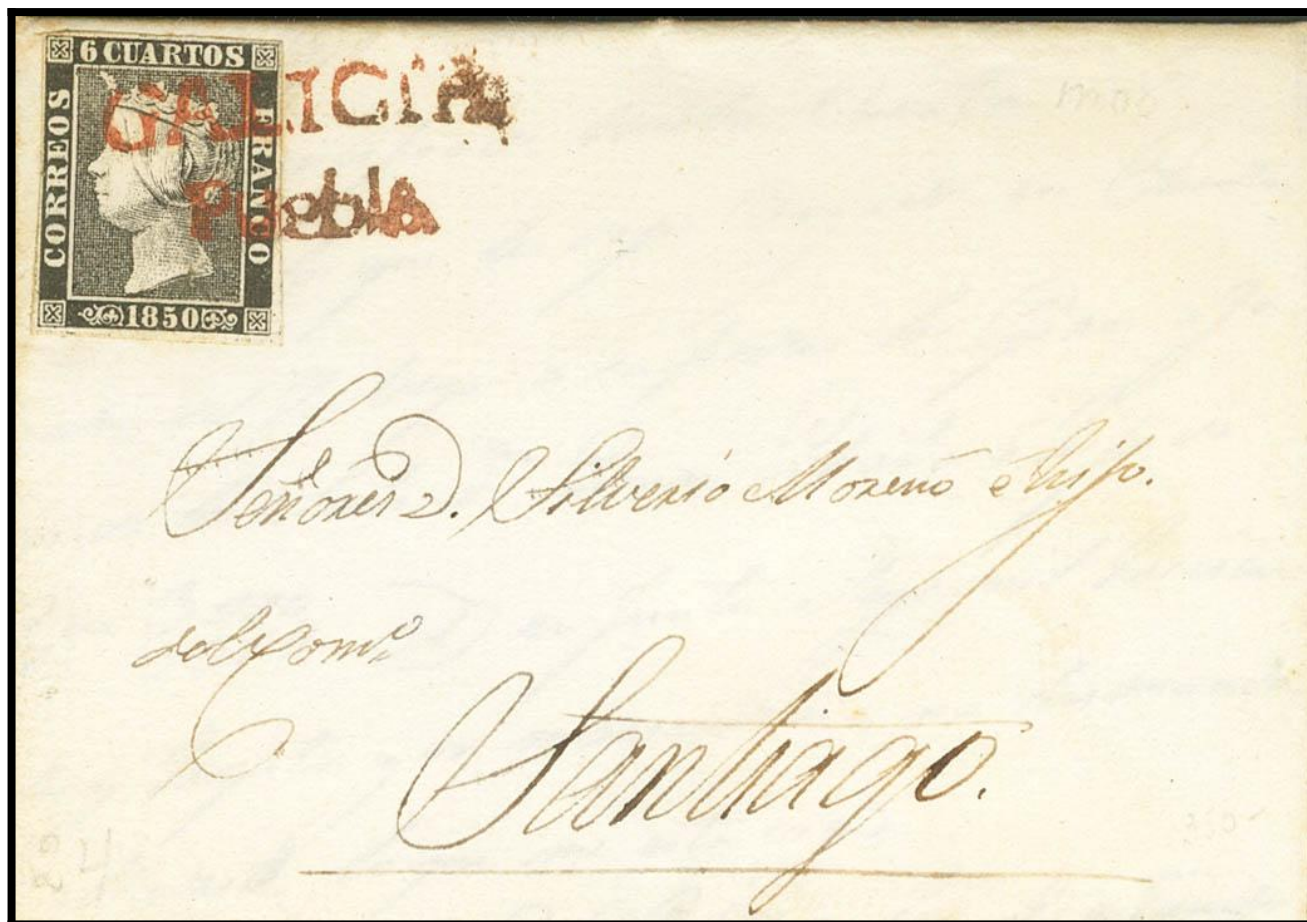 6 CUARTOS
CORREOS
FRANCO
1850
GALICIA
Puebla
Señores D. Silverio Moreno e hijo.
del Comº
Santiago.